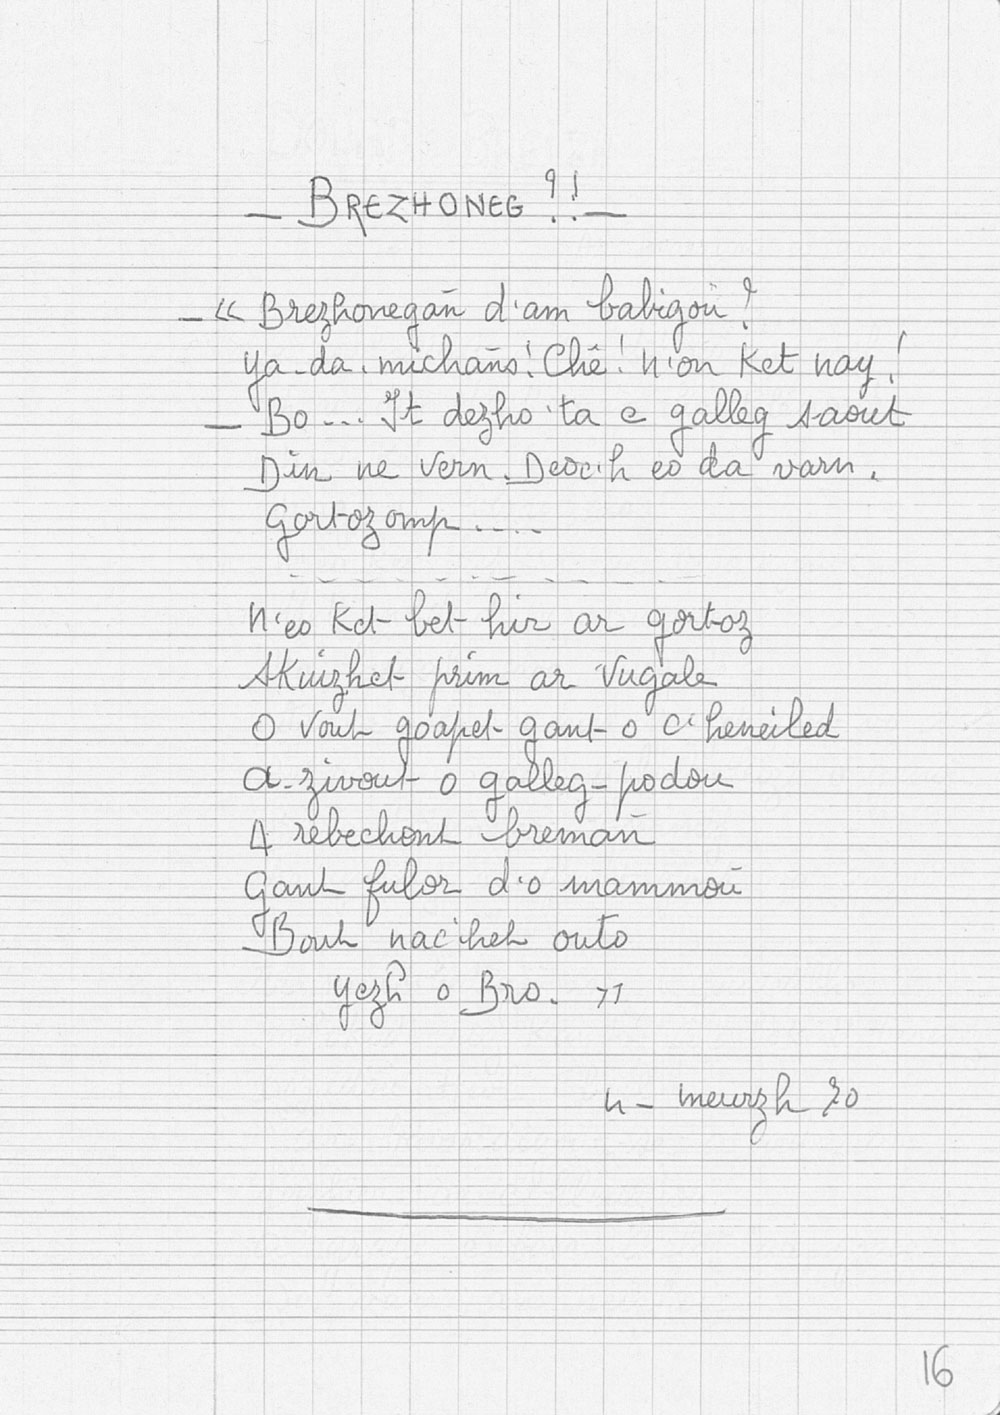 — BREZHONEG ?! —
— « Brezhonegañ d'am babigoù ?
Ya-da. michañs ! Chê ! N'on Ket nay !
— Bo .... It dezho 'ta e galleg saout
Din ne vern. Deoc'h eo da varn.
Gortozomp ....
N'eo Ket bet hir ar gortoz
Skuizhet prim ar Vugale
O vout goapet gant o c'heneiled
a-zivout o galleg-podou
A rebechont bremañ
Gant fulor d'o mammoù
Bout nac'het outo
yezh o Bro. »
meurzh 70
16